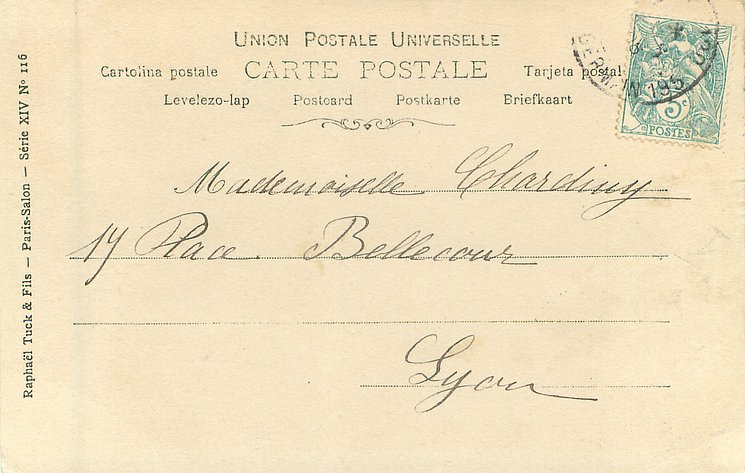 UNION POSTALE UNIVERSELLE
Cartolina postale CARTE POSTALE Tarjeta postal
Levelezo-lap Postcard Postkarte Briefkaart
5c
POSTES
Mademoiselle Chardiny
17 Place Bellecour
Lyon
Raphaël Tuck & Fils — Paris-Salon — Série XIV Nº 116